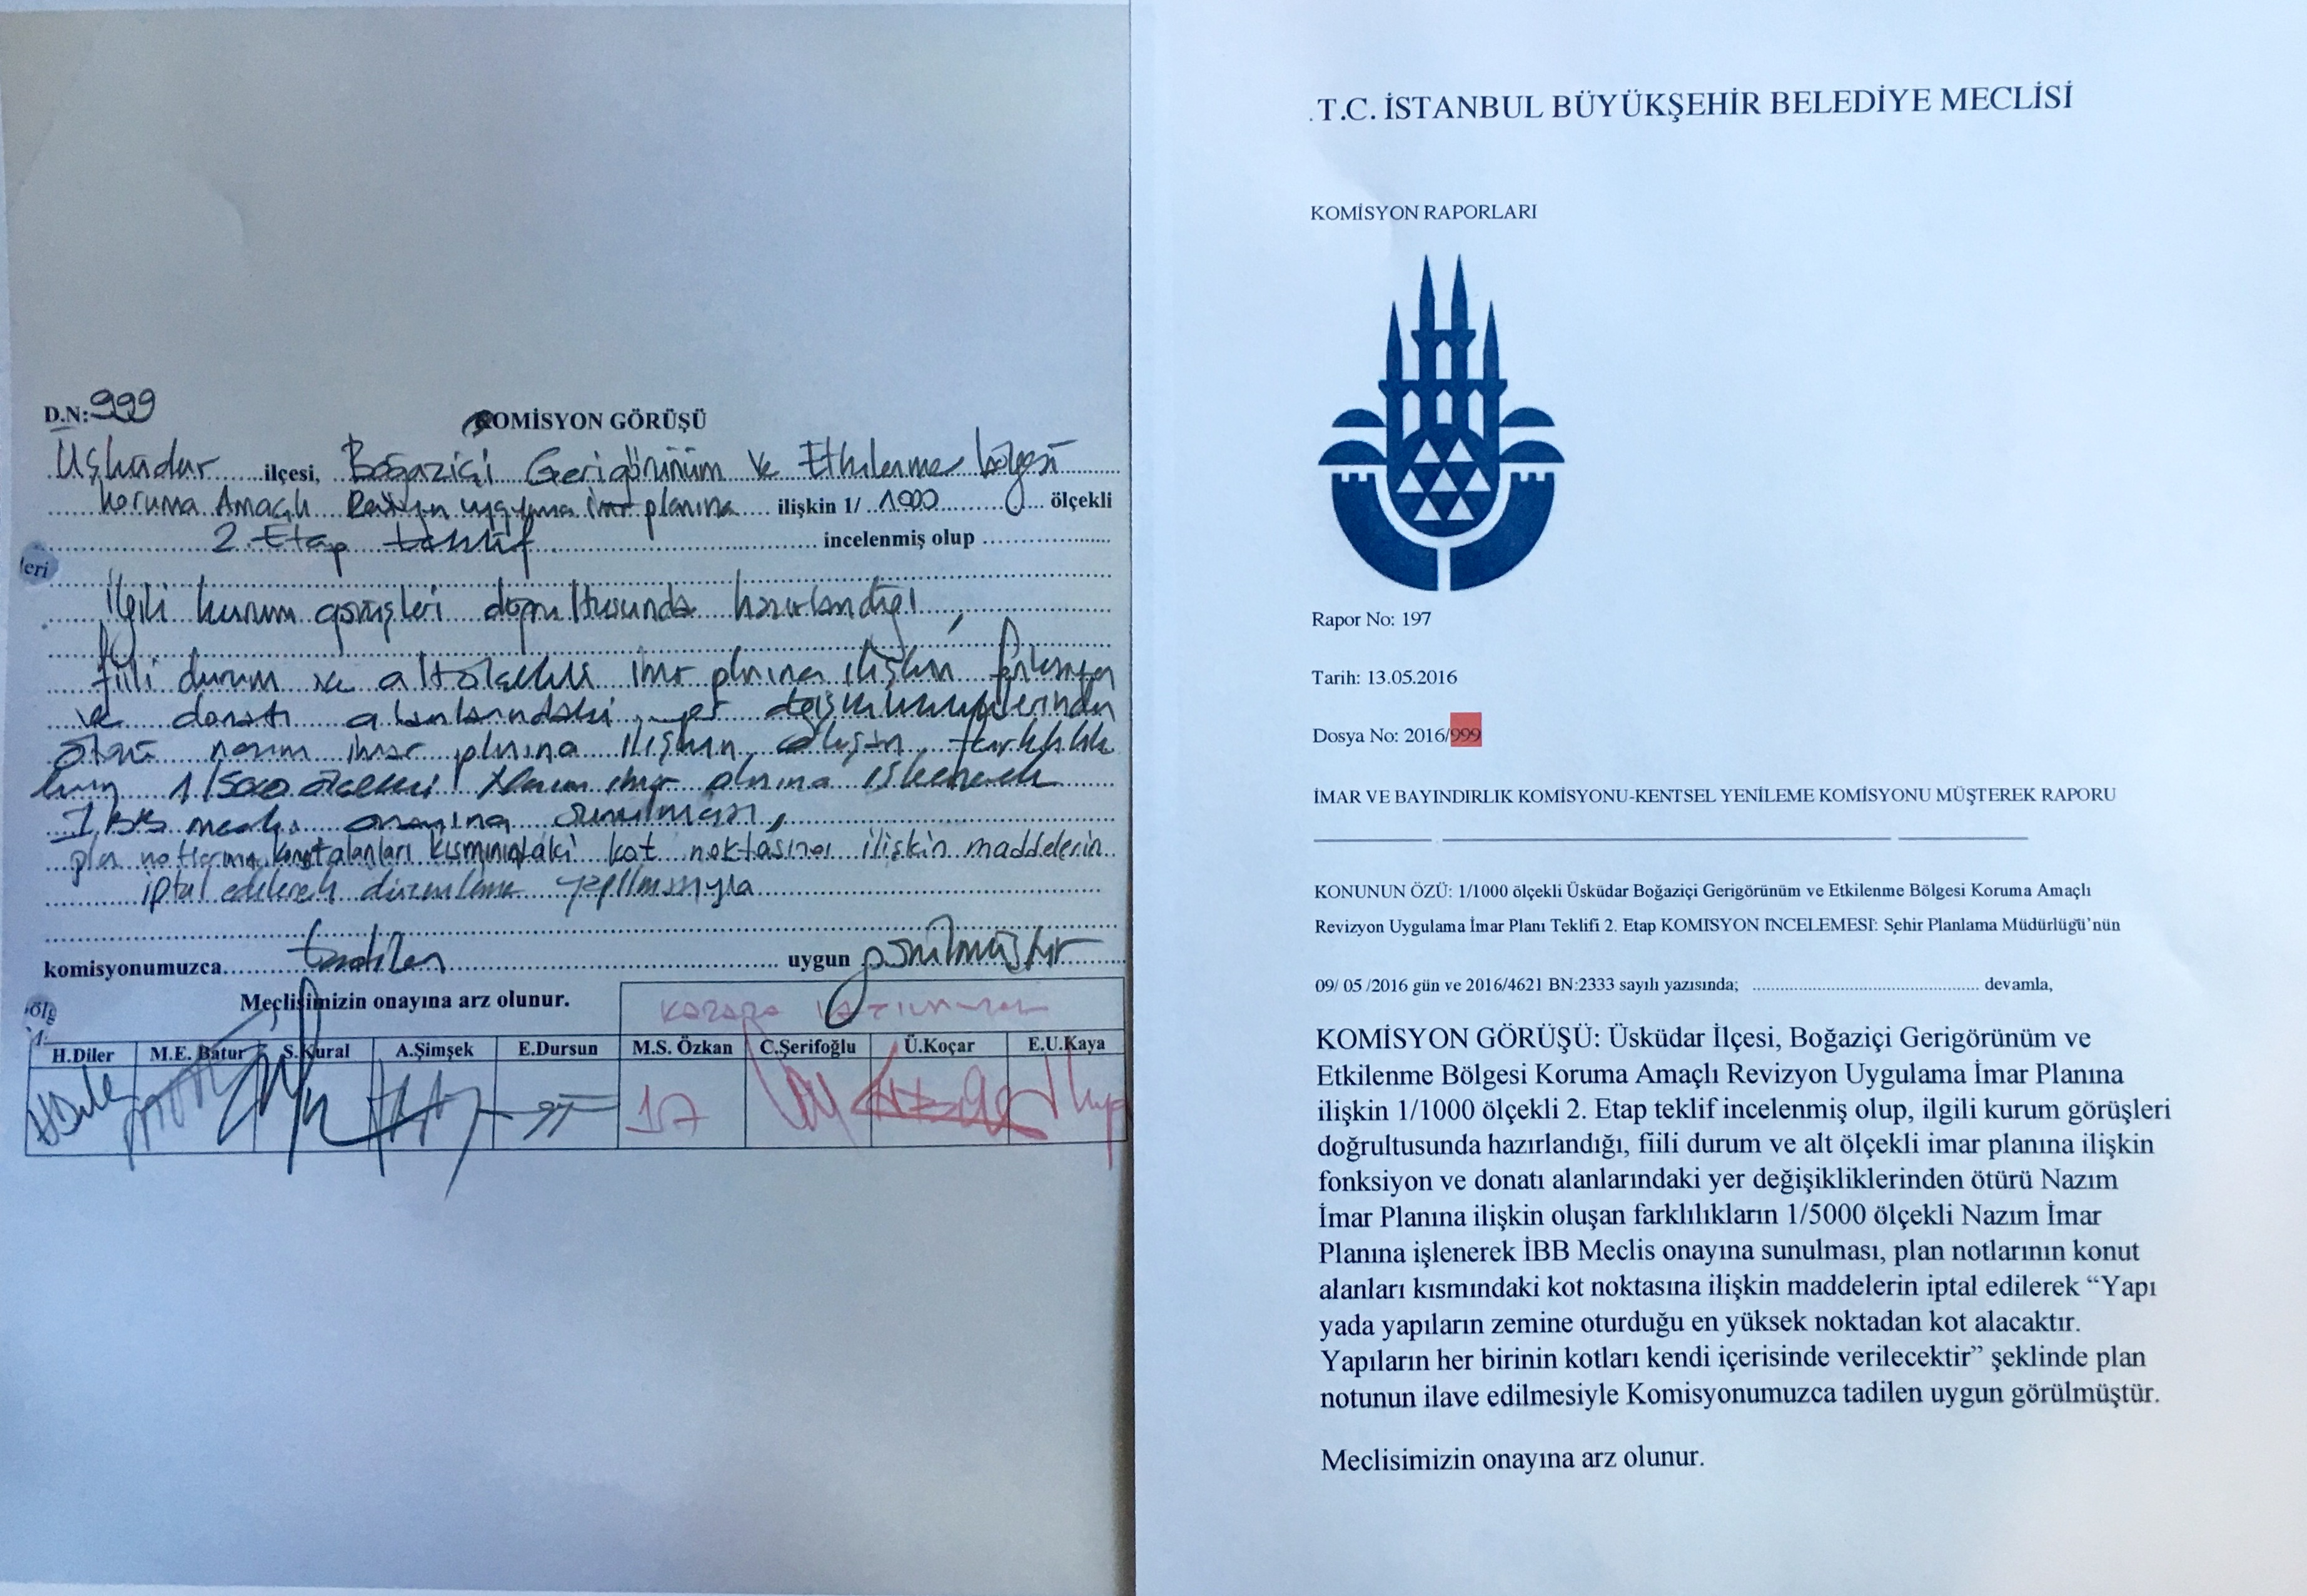 D.N: 999
KOMİSYON GÖRÜŞÜ
Üsküdar ilçesi, Boğaziçi Gerigörünüm ve Etkilenme bölgesi
Koruma Amaçlı Revizyon uygulama imar planına ilişkin 1/ 1000 ölçekli
2. Etap teklif incelenmiş olup
leri
İlgili kurum görüşleri doğrultusunda hazırlandığı,
fiili durum ve alt ölçekli imar planına ilişkin fonksiyon
ve donatı alanlarındaki yer değişikliklerinden
ötürü nazım imar planına ilişkin oluşan farklılık
ların 1/5000 ölçekli Nazım imar planına işlenerek
İBB meclis onayına sunulması,
plan notlarının konut alanları kısmınındaki kot noktasına ilişkin maddelerin
iptal edilerek düzenleme yapılmasıyla
komisyonumuzca tadilen uygun görülmüştür
Meclisimizin onayına arz olunur.
ölg
KARARA
H.Diler M.E. Batur S.Kural A.Şimşek E.Dursun M.S. Özkan C.Şerifoğlu Ü.Koçar E.U.Kaya
HDiler
.T.C. İSTANBUL BÜYÜKŞEHİR BELEDİYE MECLİSİ
KOMİSYON RAPORLARI
Rapor No: 197
Tarih: 13.05.2016
Dosya No: 2016/999
İMAR VE BAYINDIRLIK KOMİSYONU-KENTSEL YENİLEME KOMİSYONU MÜŞTEREK RAPORU
KONUNUN ÖZÜ: 1/1000 ölçekli Üsküdar Boğaziçi Gerigörünüm ve Etkilenme Bölgesi Koruma Amaçlı
Revizyon Uygulama İmar Planı Teklifi 2. Etap KOMISYON INCELEMESI: Şehir Planlama Müdürlüğü'nün
09/ 05 /2016 gün ve 2016/4621 BN:2333 sayılı yazısında; ............................................ devamla,
KOMİSYON GÖRÜŞÜ: Üsküdar İlçesi, Boğaziçi Gerigörünüm ve
Etkilenme Bölgesi Koruma Amaçlı Revizyon Uygulama İmar Planına
ilişkin 1/1000 ölçekli 2. Etap teklif incelenmiş olup, ilgili kurum görüşleri
doğrultusunda hazırlandığı, fiili durum ve alt ölçekli imar planına ilişkin
fonksiyon ve donatı alanlarındaki yer değişikliklerinden ötürü Nazım
İmar Planına ilişkin oluşan farklılıkların 1/5000 ölçekli Nazım İmar
Planına işlenerek İBB Meclis onayına sunulması, plan notlarının konut
alanları kısmındaki kot noktasına ilişkin maddelerin iptal edilerek “Yapı
yada yapıların zemine oturduğu en yüksek noktadan kot alacaktır.
Yapıların her birinin kotları kendi içerisinde verilecektir” şeklinde plan
notunun ilave edilmesiyle Komisyonumuzca tadilen uygun görülmüştür.
Meclisimizin onayına arz olunur.